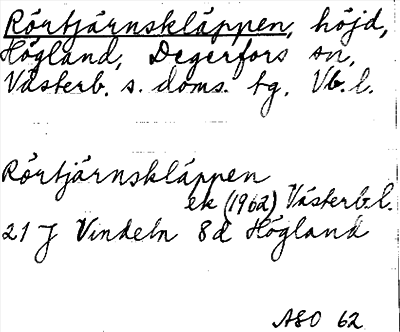 Rörtjärnskläppen, höjd,
Högland, Degerfors sn,
Västerb. s. doms. tg, Vb. l.
Rörtjärnskläppen
ek (1962) Västerb.l.
21 J Vindeln 8d Högland
ASO 62